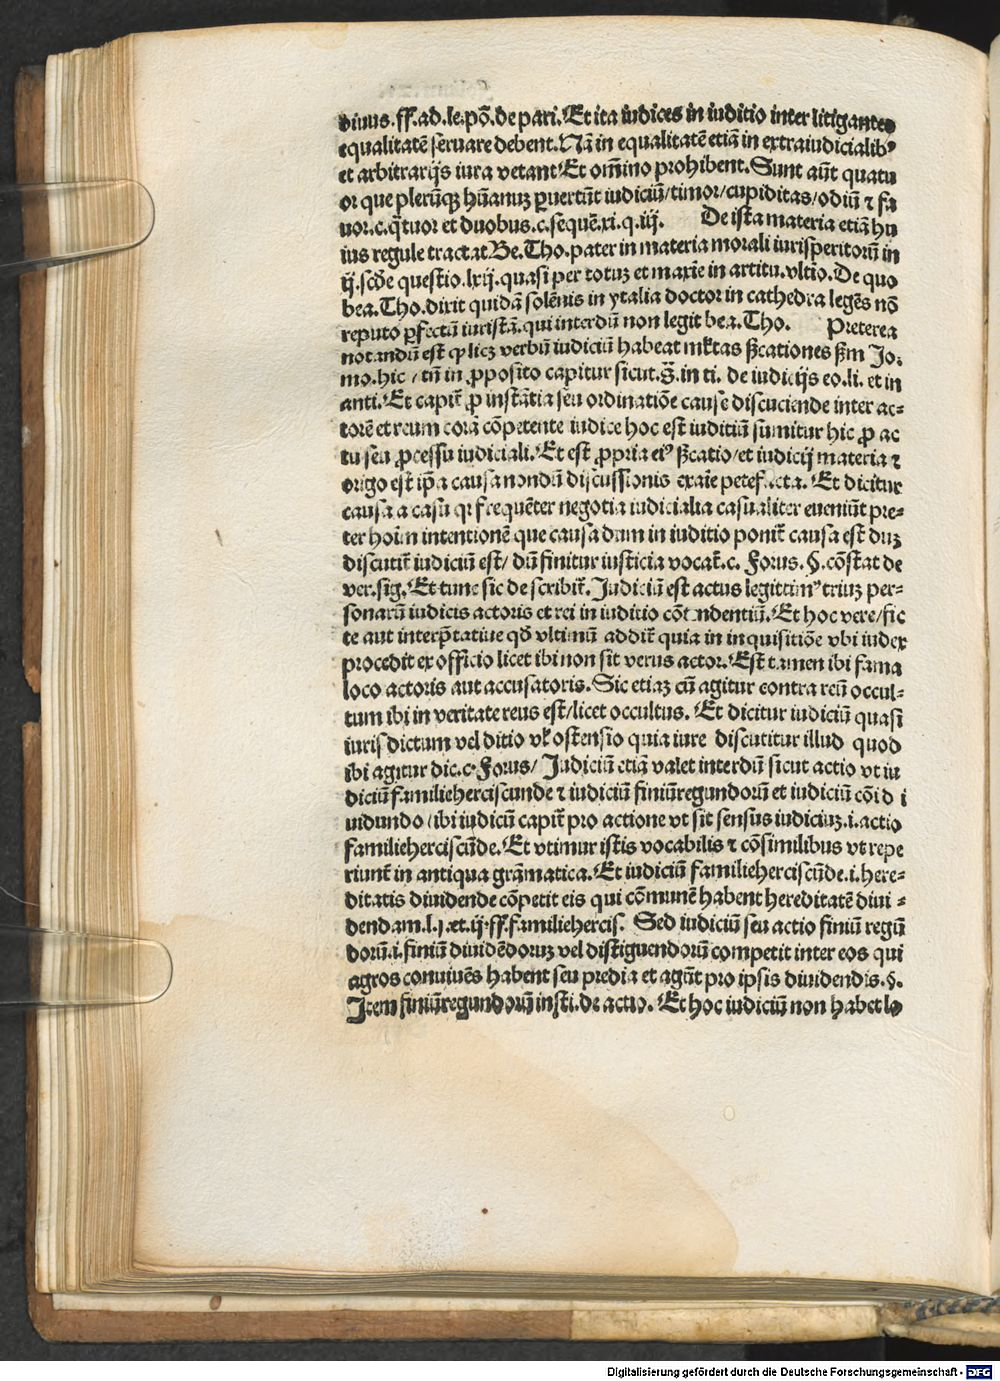 diuus.ff.ad.le.põ.de pari.Et ita iudices in iuditio inter litigantes
equalitatẽ seruare debent.Nã in equalitatẽ etiã in extraiudicialibꝰ
et arbitrarijs iura vetant Et om̃ino prohibent.Sunt aũt quatu
or que plerũqꝫ hũanuꝫ ꝑuertũt iudiciũ/timor/cupiditas/odiũ ⁊ fa
uor.c.q̃tuor et duobus.c.sequẽ.xi.q.iij. De ista materia etiã hu
ius regule tractat Be.Tho.pater in materia morali iurisperitorũ in
ij.scd̃e questio.lxij.quasi per totuꝫ et maxĩe in artitu.vltĩo.De quo
bea.Tho.dixit quidã solẽnis in ytalia doctor in cathedra legẽs nõ
reputo ꝑfectũ iuristã.qui interdũ non legit bea.Tho. Preterea
notandũ est ꝙ licꝫ verbũ iudiciũ habeat ml̃tas s̃cationes s̃m Jo.
mo.hic / tñ in ꝓposito capitur sicut.s̃.in ti. de iudicijs eo.li. et in
anti.Et capit̃ ꝓ instãtia seu ordinatiõe cause discuciende inter ac⸗
torẽ et reum corã cõpetente iudice hoc est iuditiũ sumitur hic ꝓ ac
tu seu ꝓcessu iudiciali.Et est ꝓpria eiꝰ s̃catio/et iudicij materia ⁊
origo est ip̃a causa nondũ discussionis exaĩe petefacta. Et dicitur
causa a casu qꝛ frequẽter negotia iudicialia casualiter eueniũt pre⸗
ter hoĩm intentionẽ que causa dum in iuditio ponit̃ causa est duꝫ
discutit̃ iudiciũ est/ dũ finitur iusticia vocat̃.c. Forus. §.cõstat de
ver.sig.Et tunc sic describit̃.Judiciũ est actus legittimꝰ triuꝫ per⸗
sonarũ iudicis actoris et rei in iuditio cõtendentiũ.Et hoc vere/fic
te aut interp̃tatiue qd̃ vltimũ addit̃ quia in inquisitiõe vbi iudex
procedit ex officio licet ibi non sit verus actor.Est tamen ibi fama
loco actoris aut accusatoris.Sic etiaꝫ cũ agitur contra reũ occul⸗
tum ibi in veritate reus est/licet occultus. Et dicitur iudiciũ quasi
iuris dictum vel ditio vl̃ ostensio quia iure discutitur illud quod
ibi agitur dic.c.Forus/ Judiciũ etiã valet interdũ sicut actio vt iu
diciũ familieherciscunde ⁊ iudiciũ finiũregundorũ et iudiciũ cõi d i
uidundo/ibi iudicũ capit̃ pro actione vt sit sensus iudiciuꝫ.i.actio
familieherciscũde.Et vtimur istis vocabilis ⁊ cõsimilibus vt repe
riunt̃ in antiqua grãmatica.Et iudiciũ familieherciscũde.i.here⸗
ditatis diuidende cõpetit eis qui cõmunẽ habent hereditatẽ diui ⸗
dendam.l.j.et.ij.ff.familiehercis. Sed iudiciũ seu actio finiũ regũ
dorũ.i.finiũ diuidẽdoruꝫ vel distiguendorũ competit inter eos qui
agros conuiuẽs habent seu predia et agũt pro ipsis diuidendis.§.
Item finiũregundorũ insti.de actio. Et hoc iudiciũ non habet lo
Digitalisierung gefördert durch die Deutsche Forschungsgemeinschaft - DFG